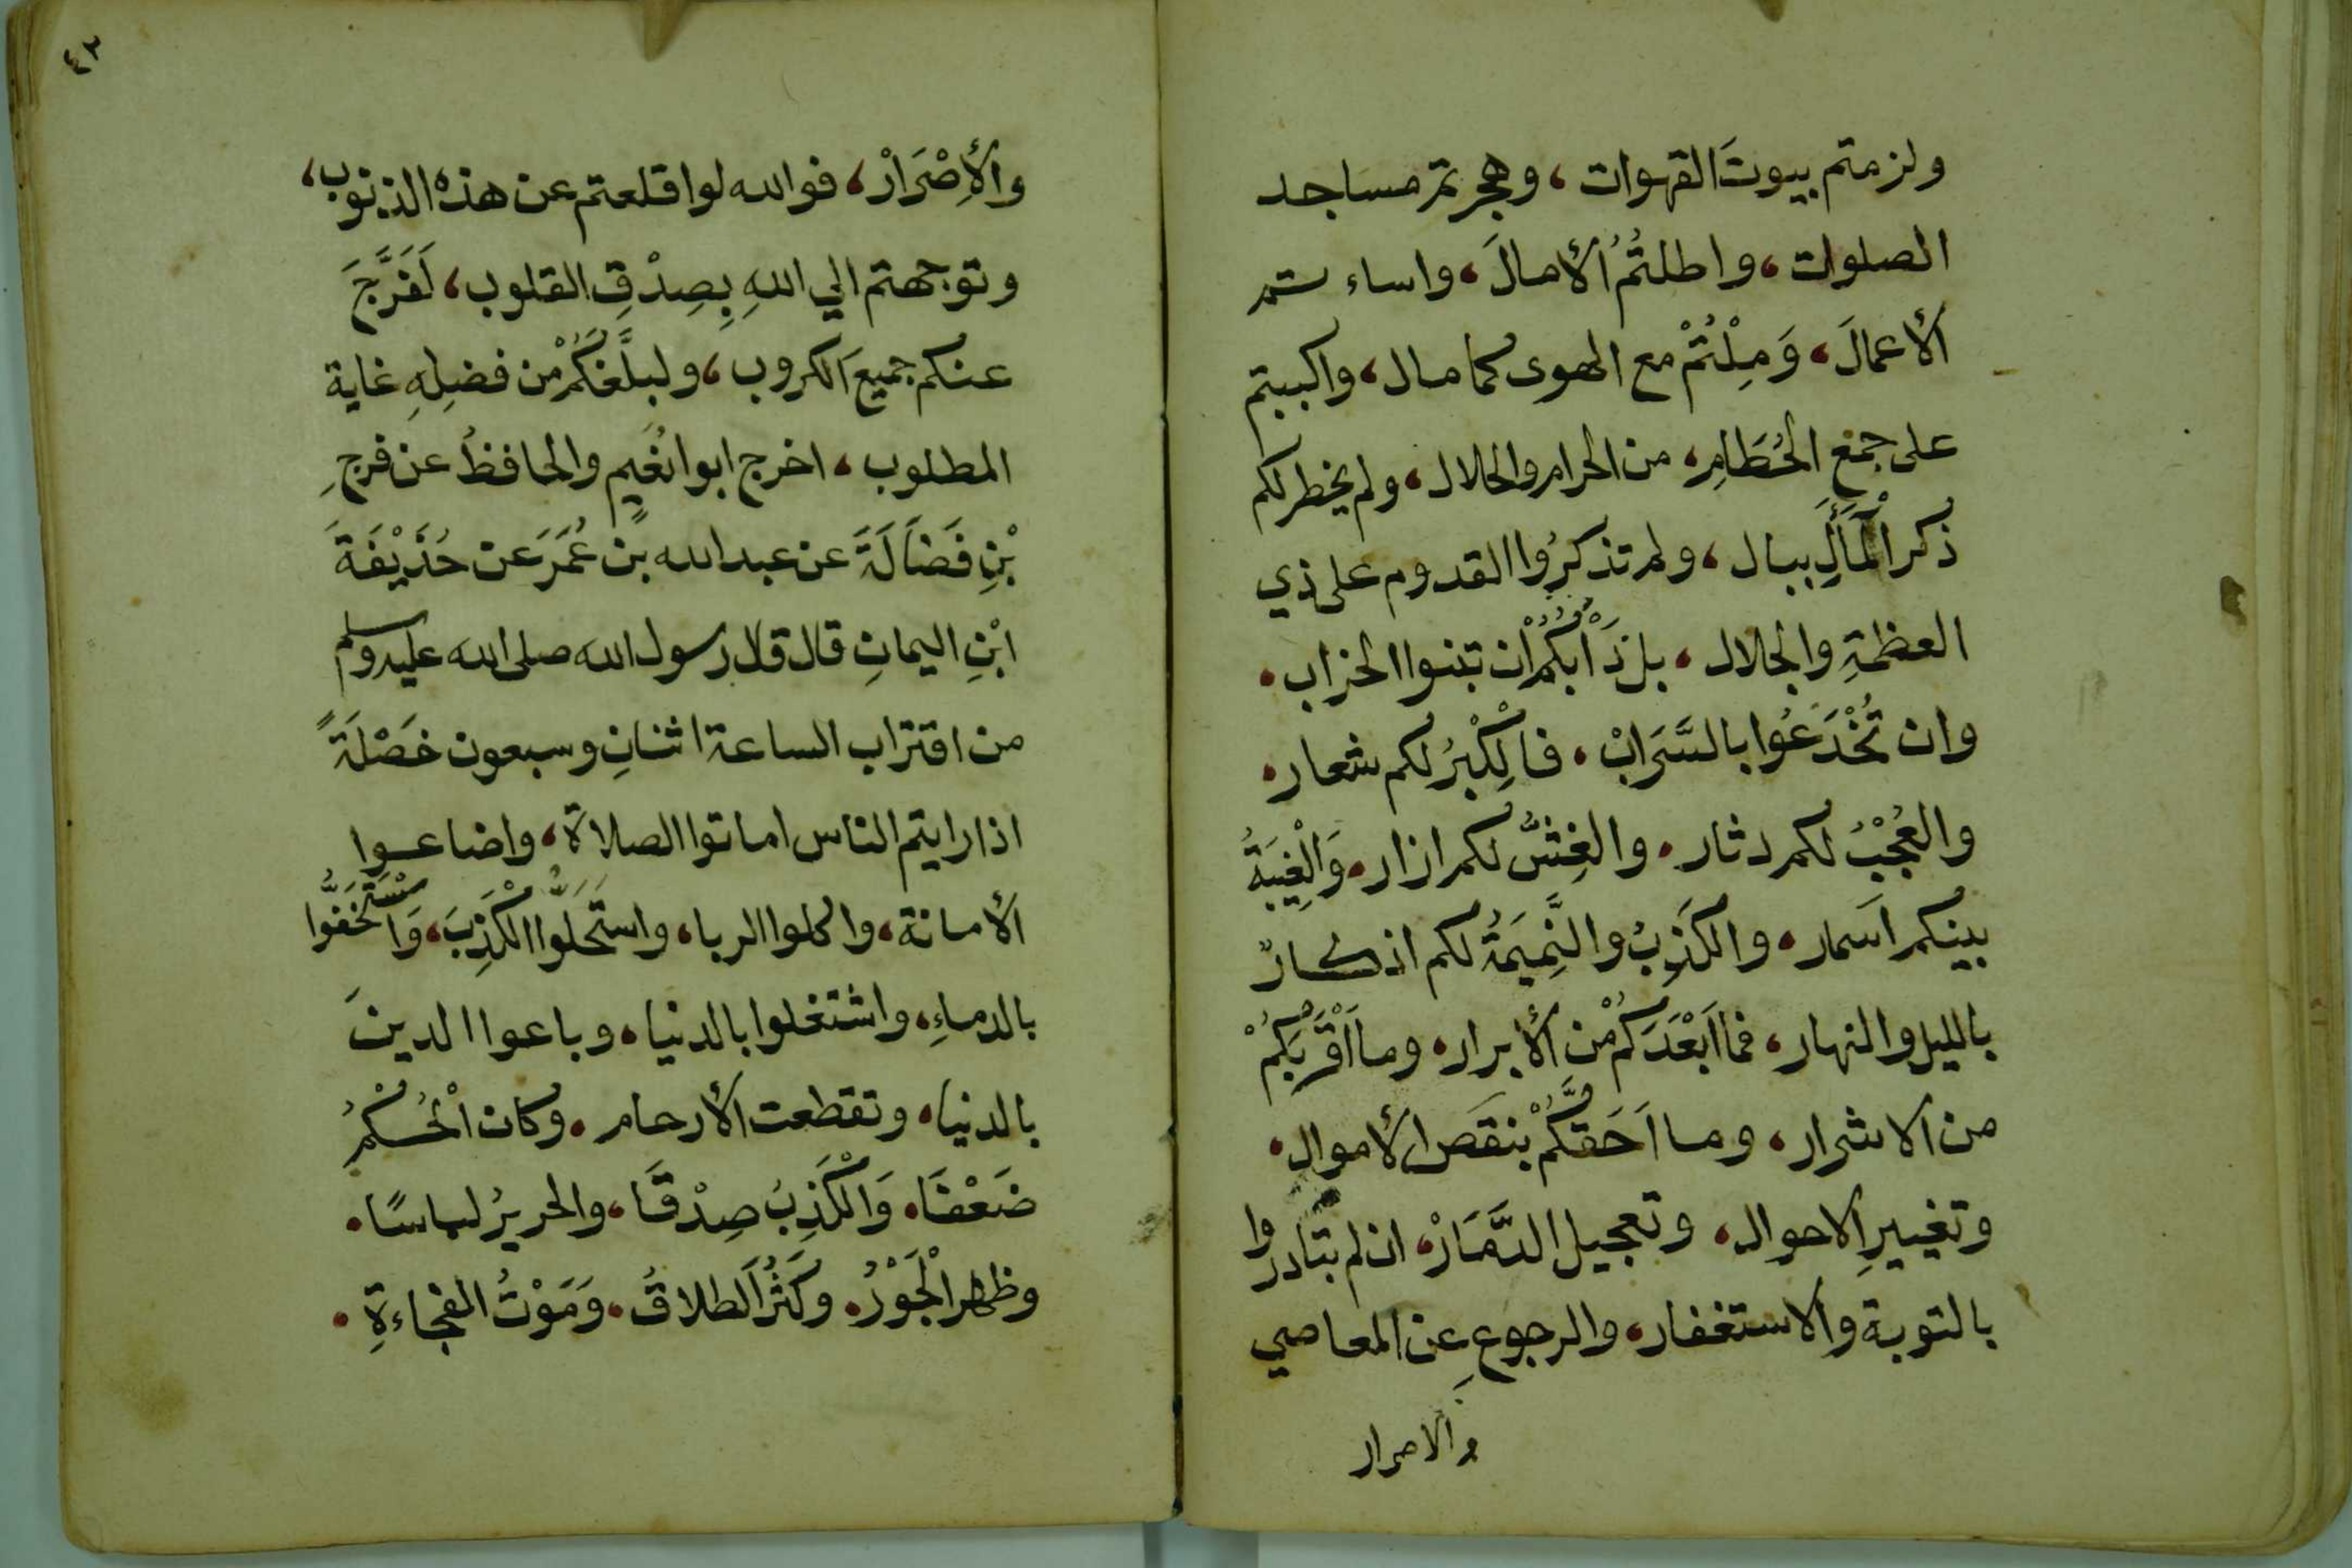 ولزمتم بيوتَ القهوات، وهجرتم مساجد
الصلوات، واطلتُمُ الأمالَ، واساءتم
الأعمالَ، وَمِلْتُمْ مع الهوى كما مال، واكببتم
على جمع الحُطَامِ، من الحرام والحلال، ولم يخطر لكم
ذكر الْمَأَلِ ببال، ولم تذكرُوا القدوم على ذي
العظمةِ والجلال، بل دَأْبُكُمْ ان تبنوا الخراب.
وان تُخْدَعُوا بالسَّرَابْ. فالْكِبْرُ لكم شعار.
والعُجْبُ لكم دثار. والغِشُّ لكم ازار. وَالْغِيبَةُ
بينكم اَسمار. والكَذِبُ والنَّمِيمَةُ لكم اذكارٌ
بالليل والنهار، فما اَبْعَدَكُمْ مِن الأبرار. وما اَقْرَبَكُمْ
من الاشرار، وما اَحَقَّكُمْ بنقَص الأموال.
وتغييرِ الاحوال، وتعجيل الدَّمَارْ، ان لم تبادروا
بالتوبة والاستغفار، والرجوع عن المعاصي
والاصرار
٤٣
والأِصْرَارْ، فوالله لو اقلعتم عن هذه الذنوب،
وتوجهتم الي اللهِ بِصِدْقِ القلوب، لَفَرَّجَ
عنكم جميعَ الكروب، ولبلَّغَكُمْ من فضلِهِ غاية
المطلوب، اخرج ابوا نُعَيم والحافظُ عن فرجِ
بْنِ فَضَالَةَ عن عبد الله بن عُمَرَ عن حُذَيْفَةَ
ابْنِ اليمانِ قال قال رسول الله صلى الله عليه وسلم
من اقتراب الساعة اثنانِ وسبعون خَصْلَةً
اذا رايتم الناس اماتوا الصلاة، واضاعوا
الأمانة، واكلوا الربا، واستَحَلُّوا الْكَذِبَ، وَاسْتَخَفُّوا
بالدماءِ، واشتغلوا بالدنيا. وباعوا الدينَ
بالدنيا، وتقطعت الأرحام. وكان الْحُكْمُ
ضَعْفَا. وَالْكَذِبُ صِدْقًا، والحريرُ لباسًا.
وظهر الْجَوْرُ. وكَثُرَ الطلاقُ. وَمَوْتُ الفجاءةِ.